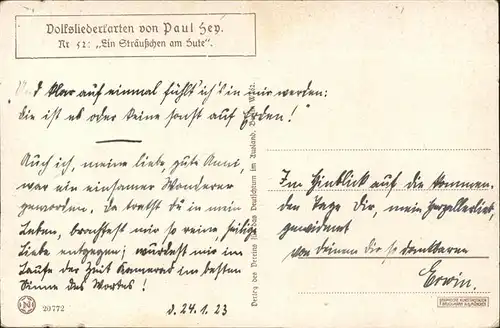 Volksliederkarten von Paul Hey.
Nr 52: „Ein Sträußchen am Hute“.
Und klar auf einmal fühlt' ich's in mir werden:
die ist es oder keine sonst auf Erden!
Auch ich, meine liebe, gute Anni,
war ein einsamer Wanderer
geworden. Da tratst du in mein
Leben, brachtest mir so reine, heilige
Liebe entgegen; wurdest mir im
Laufe der Zeit Kamerad im besten
Sinne des Wortes!
d. 24.1.23
20772
Verlag des Vereins für das Deutschtum im Ausland, Berlin
Im Hinblick auf die kommen-
den Tage dir, mein Herzallerliebst,
gewidmet
von deinem dir so dankbaren
Erwin.